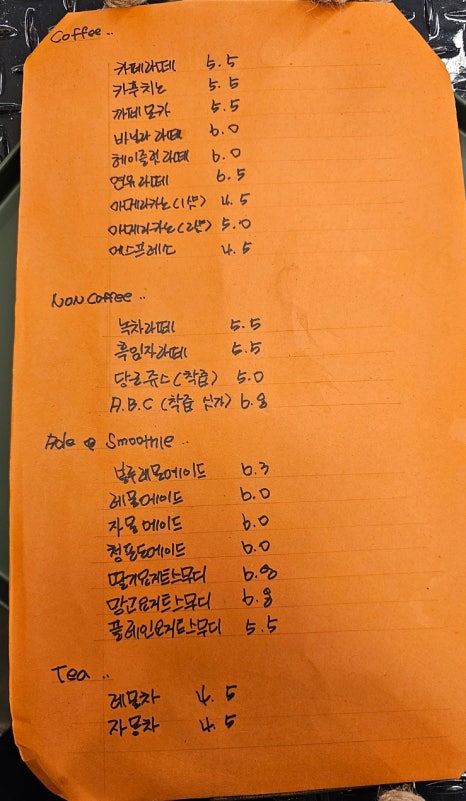 Coffee..
카페라떼 5.5
카푸치노 5.5
까페모카 5.5
바닐라 라떼 6.0
헤이즐넛 라떼 6.0
연유 라떼 6.5
아메리카노(1샷) 4.5
아메리카노(2샷) 5.0
에스프레소 4.5
NON Coffee..
녹차라떼 5.5
흑임자라떼 5.5
당근쥬스(착즙) 5.0
A.B.C (착즙 쥬스) 6.8
Ade & Smoothie..
블루레몬에이드 6.3
레몬에이드 6.0
자몽에이드 6.0
청포도에이드 6.0
딸기요거트스무디 6.8
망고요거트스무디 6.8
플레인요거트스무디 5.5
Tea ..
레몬차 4.5
자몽차 4.5